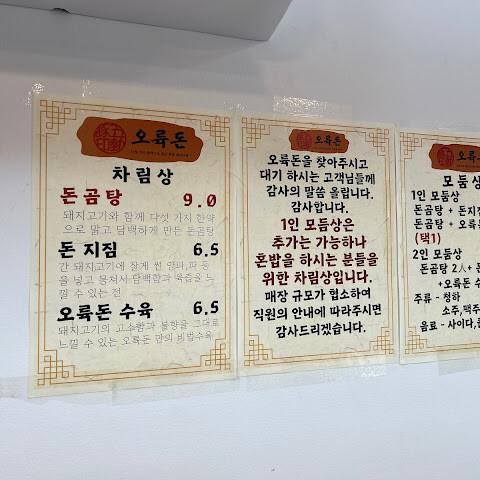 오륙돈
차림상
돈곰탕 9.0
돼지고기와 함께 다섯 가지 한약
으로 맑고 담백하게 만든 돈곰탕
돈 지짐 6.5
간 돼지고기에 잘게 썬 양파,파 등
을 넣고 뭉쳐서 담백함과 육즙을 느
낄 수 있는 전
오륙돈 수육 6.5
돼지고기의 고소함과 불향을 그대로
느낄 수 있는 오륙돈 만의 비법수육
오륙돈
오륙돈을 찾아주시고
대기 하시는 고객님들께
감사의 말씀 올립니다.
감사합니다.
1인 모둠상은
추가는 가능하나
혼밥을 하시는 분들을
위한 차림상입니다.
매장 규모가 협소하여
직원의 안내에 따라주시면
감사드리겠습니다.
오륙
모둠상
1인 모둠상
돈곰탕 + 돈지
돈곰탕 + 오륙
(택1)
2인 모둠상
돈곰탕 2人+ 돈
+오륙돈 수
주류 - 청하
소주,맥주
음료 - 사이다,